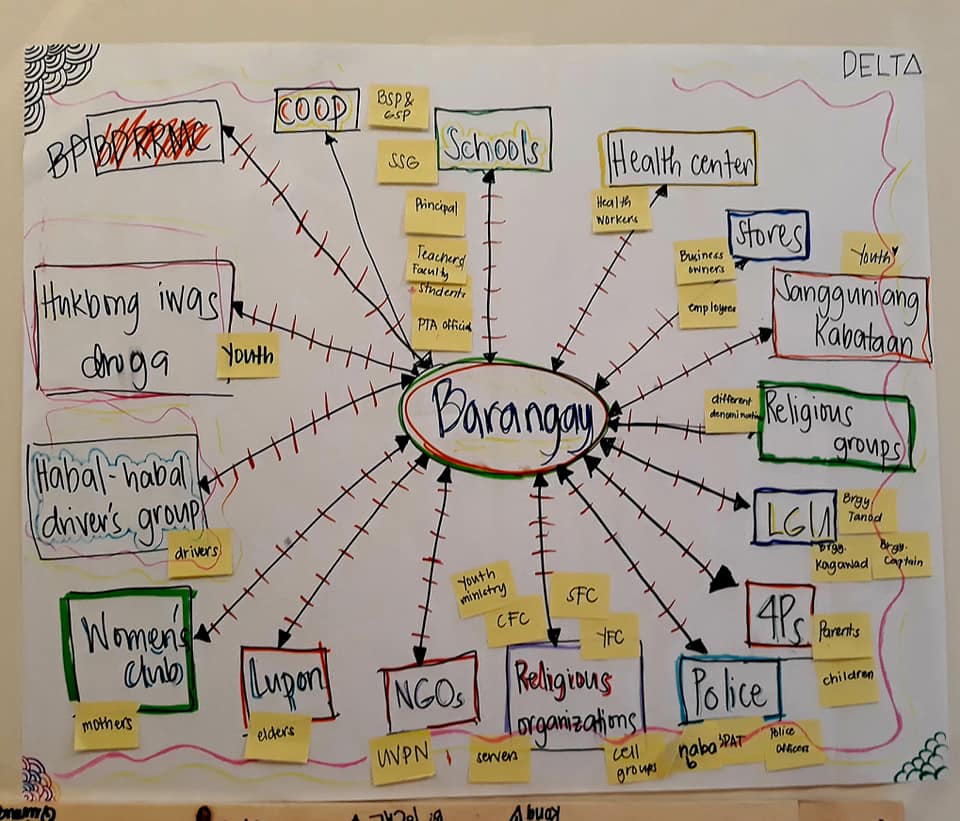 DELTA
COOP
BSP &
GSP
Schools
BP
BDRRMC
SSG
Health center
Principal
Health
Workers
Stores
Teachers/
Faculty
+ students
Business
owners
Youth
PTA official
employee
Sangguniang
Kabataan
Hukbong iwas
droga
Youth
Barangay
different
Religious
groups
Habal-habal
driver's group
drivers
LGU
Brgy
Tanod
Brgy.
Kagawad
Brgy.
Captain
Youth
ministry
CFC
SFC
YFC
4Ps
Parents
children
Women's
Club
mothers
Lupon
elders
NGOs
UVPN
Religious
organizations
servers
cell
groups
Police
PAT
Police
Officers